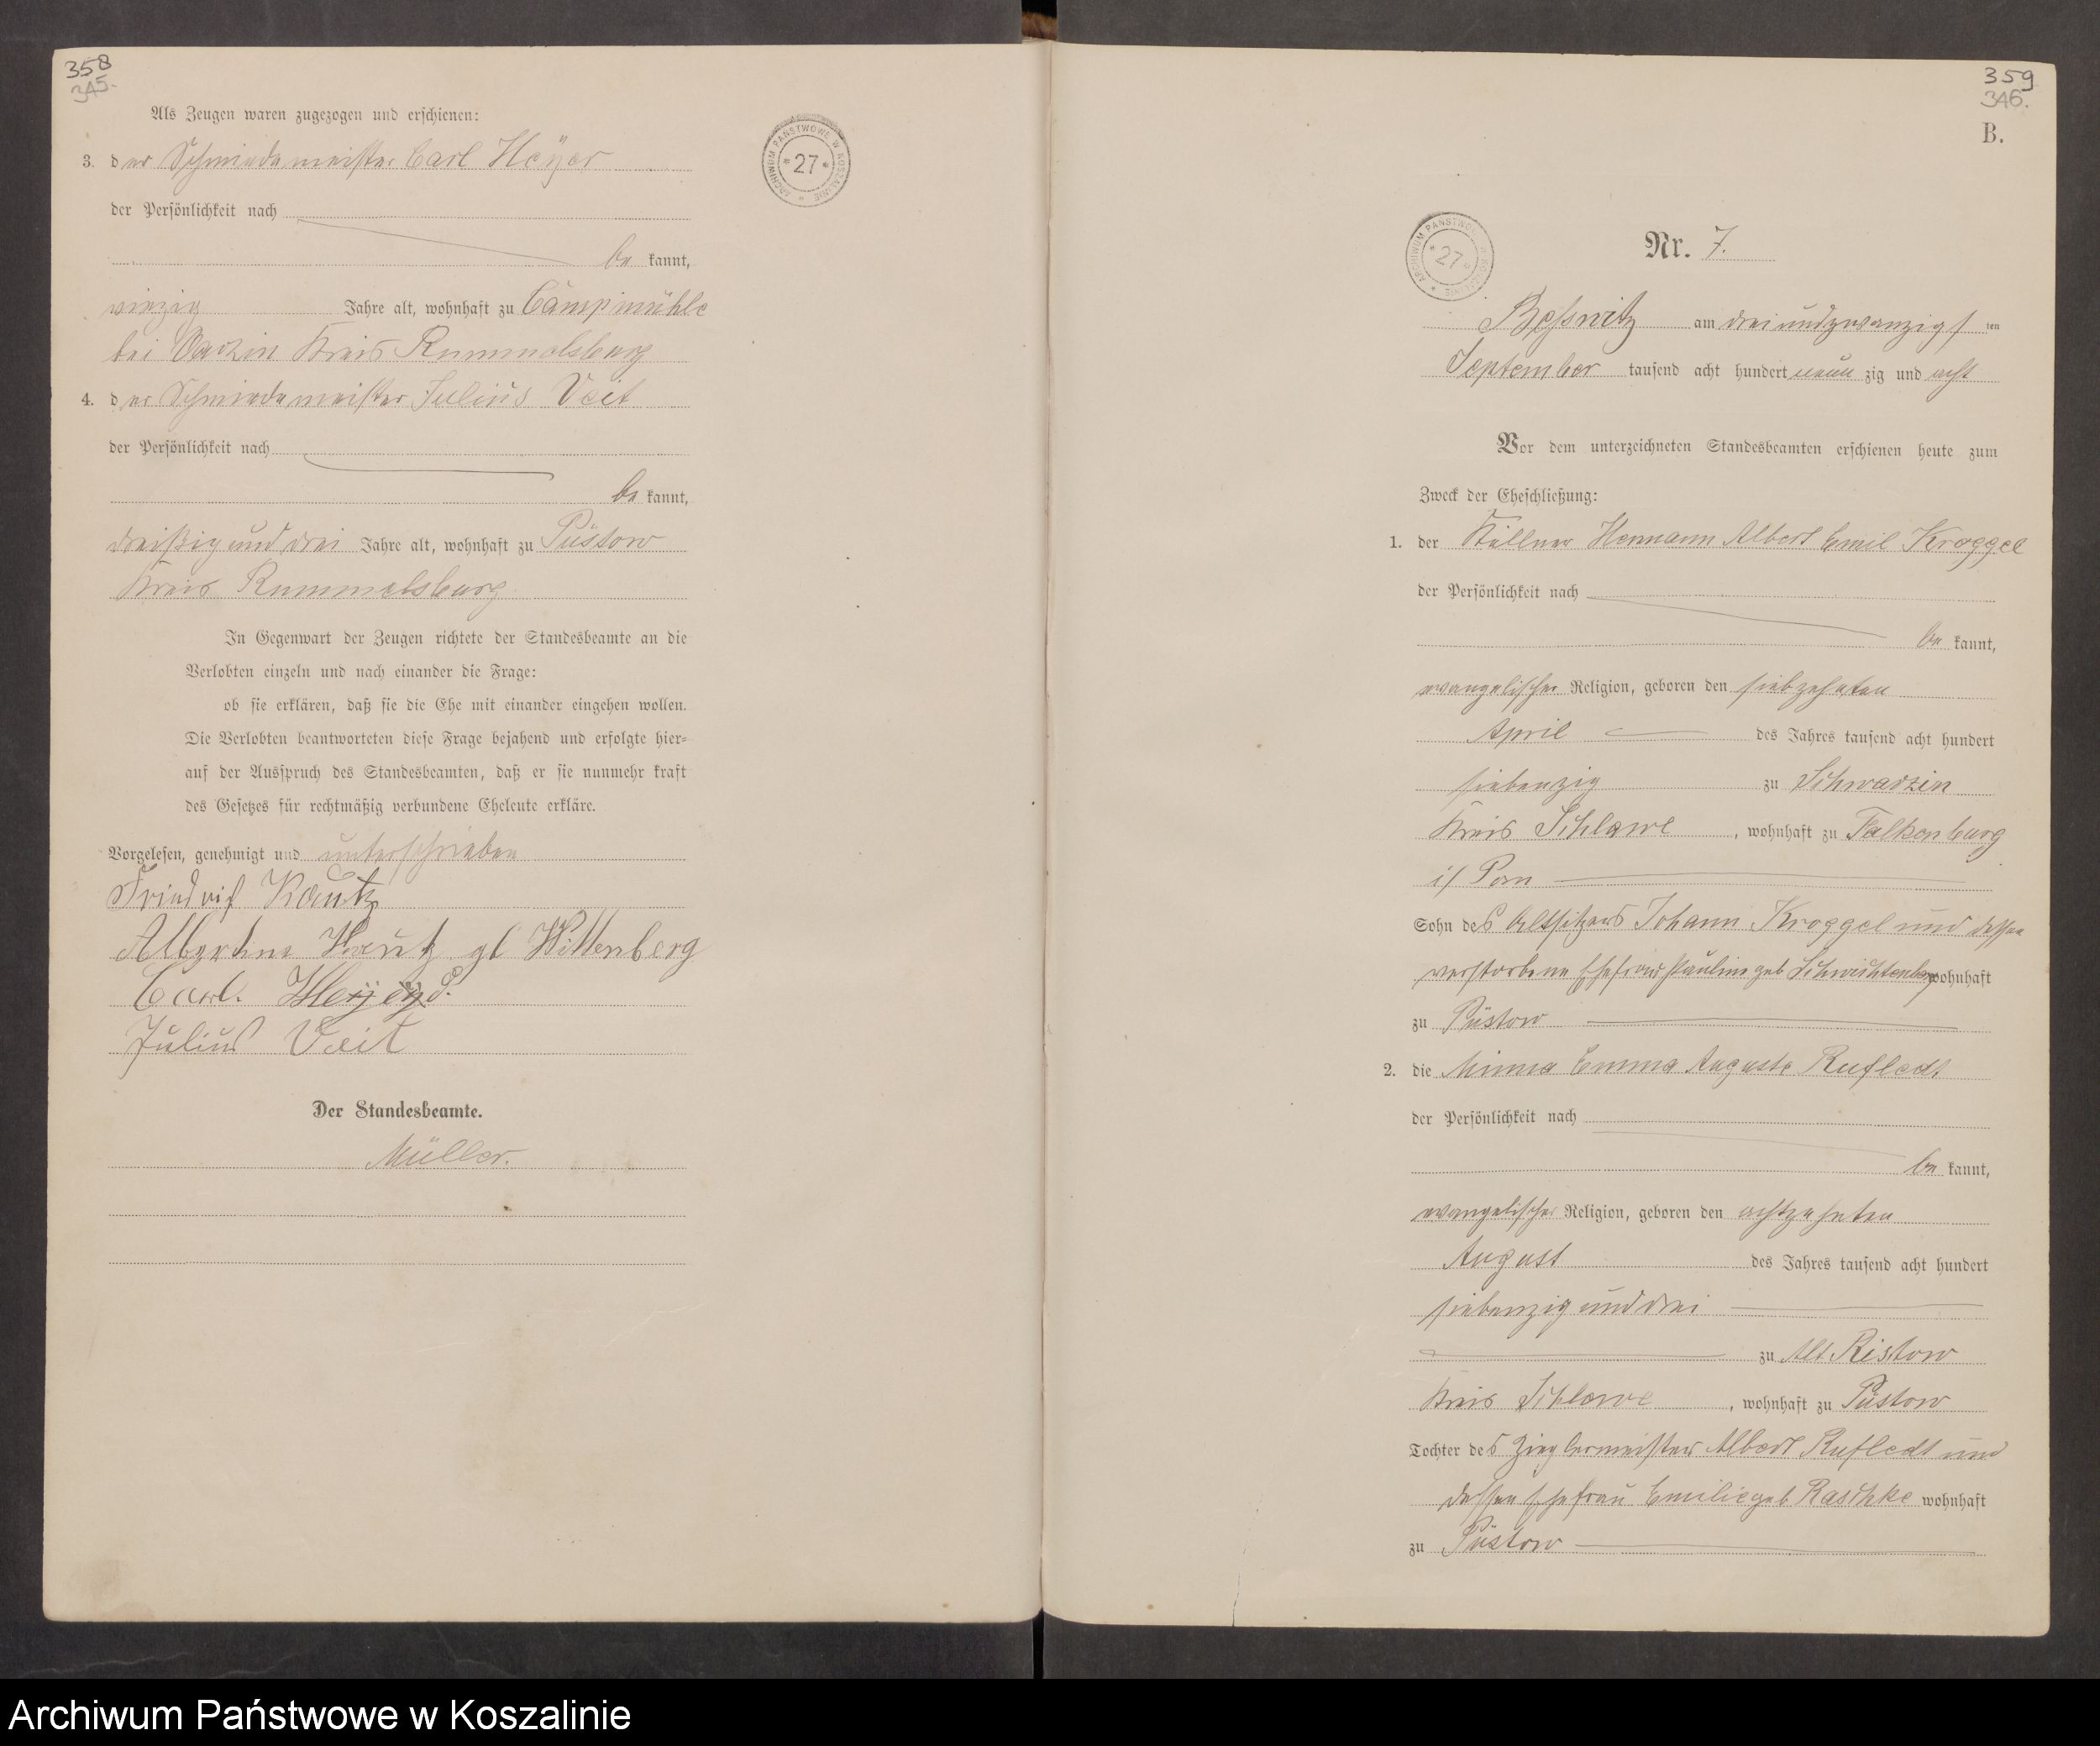 358
345.
Als Zeugen waren zugezogen und erschienen:
3. der Schmiedemeister Carl Heyer
der Persönlichkeit nach
be kannt,
vierzig Jahre alt, wohnhaft zu Campmühle
bei Varzin Kreis Rummelsburg
4. der Schmiedemeister Julius Veit
der Persönlichkeit nach
be kannt,
dreißig und drei Jahre alt, wohnhaft zu Püstow
Kreis Rummelsburg
In Gegenwart der Zeugen richtete der Standesbeamte an die
Verlobten einzeln und nach einander die Frage:
ob sie erklären, daß sie die Ehe mit einander eingehen wollen.
Die Verlobten beantworteten diese Frage bejahend und erfolgte hier-
auf der Ausspruch des Standesbeamten, daß er sie nunmehr kraft
des Gesetzes für rechtmäßig verbundene Eheleute erkläre.
Vorgelesen, genehmigt und unterschrieben
Friedrich Kautz
Albertine Kautz gb Wittenberg
Carl
Julius Veit
Der Standesbeamte.
Müller.
ARCHIWUM PAŃSTWOWE W KOSZALINIE * 27 *
359
346.
B.
ARCHIWUM PAŃSTWOWE W KOSZALINIE * 27 *
Nr. 7.
Beßwitz am drei und zwanzigs ten
September tausend acht hundert neun zig und acht
Vor dem unterzeichneten Standesbeamten erschienen heute zum
Zweck der Eheschließung:
1. der Kellner Hermann Albert Emil Kroggel
der Persönlichkeit nach
be kannt,
evangelischer Religion, geboren den siebzehnten
April des Jahres tausend acht hundert
siebenzig zu Schwarzin
Kreis Schlawe, wohnhaft zu Falkenburg
i/ Pom
Sohn des Altsitzers Johann Kroggel und dessen
verstorbene Ehefrau Pauline geb Schwichtenberg wohnhaft
zu Püstow
2. die Minna Emma Auguste Rufledt
der Persönlichkeit nach
be kannt,
evangelischer Religion, geboren den achtzehnten
August des Jahres tausend acht hundert
siebenzig und drei
zu Alt Ristow
Kreis Schlawe, wohnhaft zu Püstow
Tochter des Zieglermeisters Albert Rufledt und
dessen Ehefrau Emilie geb Raschke wohnhaft
zu Püstow
Archiwum Państwowe w Koszalinie